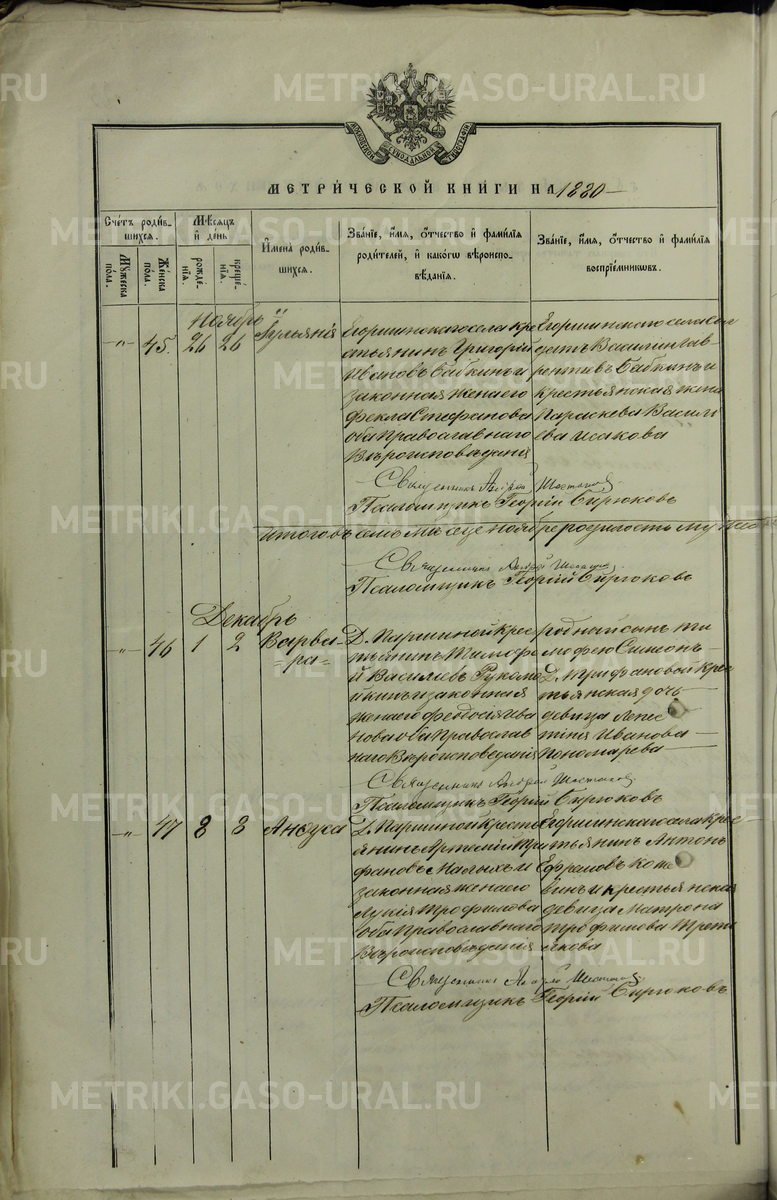 METRIKI.GASO-URAL.RU
МОСКОВСКОЙ СѴНОДАЛЬНОЙ ТИПОГРАФІИ
МЕТРИ́ЧЕСКОЙ КНИ́ГИ НА 1880
Счетъ роди́в-
шихся.
Му́жеска
по́ла.
Же́нска
по́ла.
Мѣ́сяцъ
и҆ де́нь
рожде́-
нїѧ.
креще́-
нїѧ.
И҆мена роди́в-
шихся.
Зва́нїе, и҆́мя, ѻ҆́тчество и҆ фами́лїя
роди́телей, и҆ како́гѡ вѣроиспо-
вѣ́данїя.
Зва́нїе, и҆́мя, ѻ҆́тчество и҆ фами́лїя
воспрїе́мникѡвъ.
Ноябрь
-„- 45. 26 26 Іульянія
Егоршинскаго села кре
стьянинъ Григорій
Ивановъ Бабкинъ и
законная жена его
Фекла Стефанова
оба Православнаго
Вѣроисповѣданія
Егоршинскаго села Сол
датъ Василій Лав
рентьевъ Бабкинъ и
крестьянская жена
Параскева Василь
ева Исакова
Священникъ Андрей Шестаковъ
Псаломщикъ Георгій Бирюковъ
Итого въ семъ мѣсяце ноябре родилось Мужеска
Священникъ Андрей Шестаковъ
Псаломщикъ Георгій Бирюковъ
Декабрь
-„- 46 1 2 Варва-
=ра=
Д. Паршиной крес
тьянинъ Тимофе
й Васильевъ
и законная
жена его Феодосія Ива
нова оба Православ
наго Вѣроисповеданія
Родный сынъ Ти
мофею Симеонъ
Д. Трифановой крес
тьянская дочь
девица
Иванова
Пономарева
Священникъ Андрей Шестаковъ
Псаломщикъ Георгій Бирюковъ
-„- 47 8 8 Анфуса
Д. Паршиной кресть
янинъ Артемій Три
фановъ Малыхъ и
законная жена его
Лукія Трофимова
Оба Православнаго
Вѣроисповѣданія
Егоршинскаго села крес
тьянинъ Антонъ
Ефремовъ Коте
винъ и крестьянская
девица Матрона
Трофимова Трети
якова
Священникъ Андрей Шестаковъ
Псаломщикъ Георгій Бирюковъ